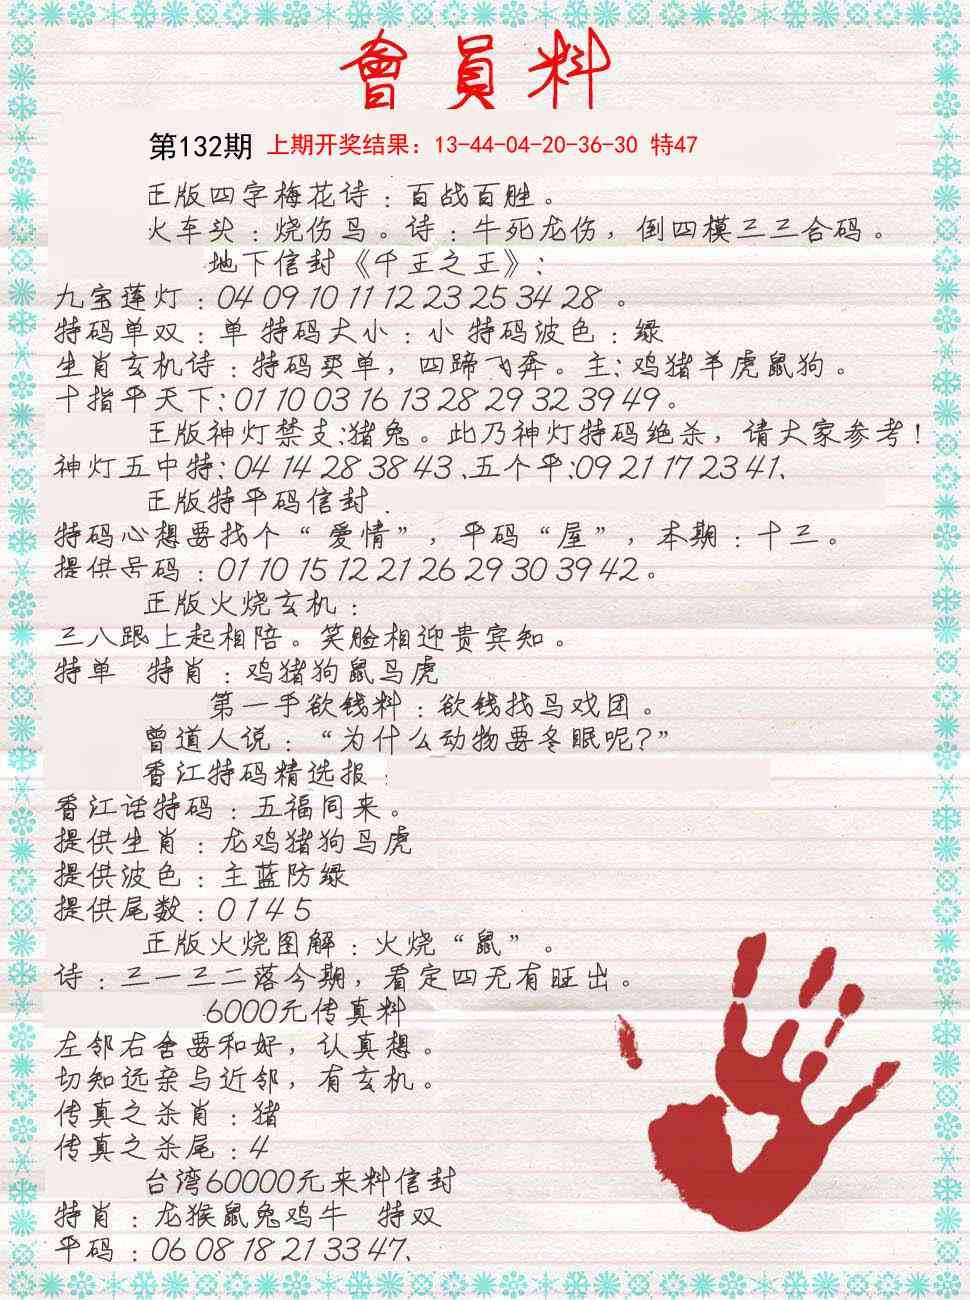 會員料
第132期 上期开奖结果：13-44-04-20-36-30 特47
正版四字梅花诗：百战百胜。
火车头：烧伤鸟。诗：牛死龙伤，倒四模三三合码。
地下信封《千王之王》：
九宝莲灯：04 09 10 11 12 23 25 34 28 。
特码单双：单 特码大小：小 特码波色：绿
生肖玄机诗：特码买单，四蹄飞奔。主：鸡猪羊虎鼠狗。
十指平天下：01 10 03 16 13 28 29 32 39 49。
正版神灯禁支:猪兔。此乃神灯特码绝杀，请大家参考！
神灯五中特：04 14 28 38 43、五个平：09 21 17 23 41、
正版特平码信封：
特码心想要找个“爱情”，平码“屋”，本期：十三。
提供号码：01 10 15 12 21 26 29 30 39 42。
正版火烧玄机：
三八跟上起相陪。笑脸相迎贵宾知。
特单 特肖：鸡猪狗鼠马虎
第一手欲钱料：欲钱找马戏团。
曾道人说：“为什么动物要冬眠呢?”
香江特码精选报：
香江话特码：五福同来。
提供生肖：龙鸡猪狗马虎
提供波色：主蓝防绿
提供尾数：0 1 4 5
正版火烧图解：火烧“鼠”。
诗：三一三二落今期，看定四无有旺出。
6000元传真料
左邻右舍要和好，认真想。
切知远亲与近邻，有玄机。
传真之杀肖：猪
传真之杀尾：4
台湾60000元来料信封
特肖：龙猴鼠兔鸡牛 特双
平码：06 08 18 21 33 47、